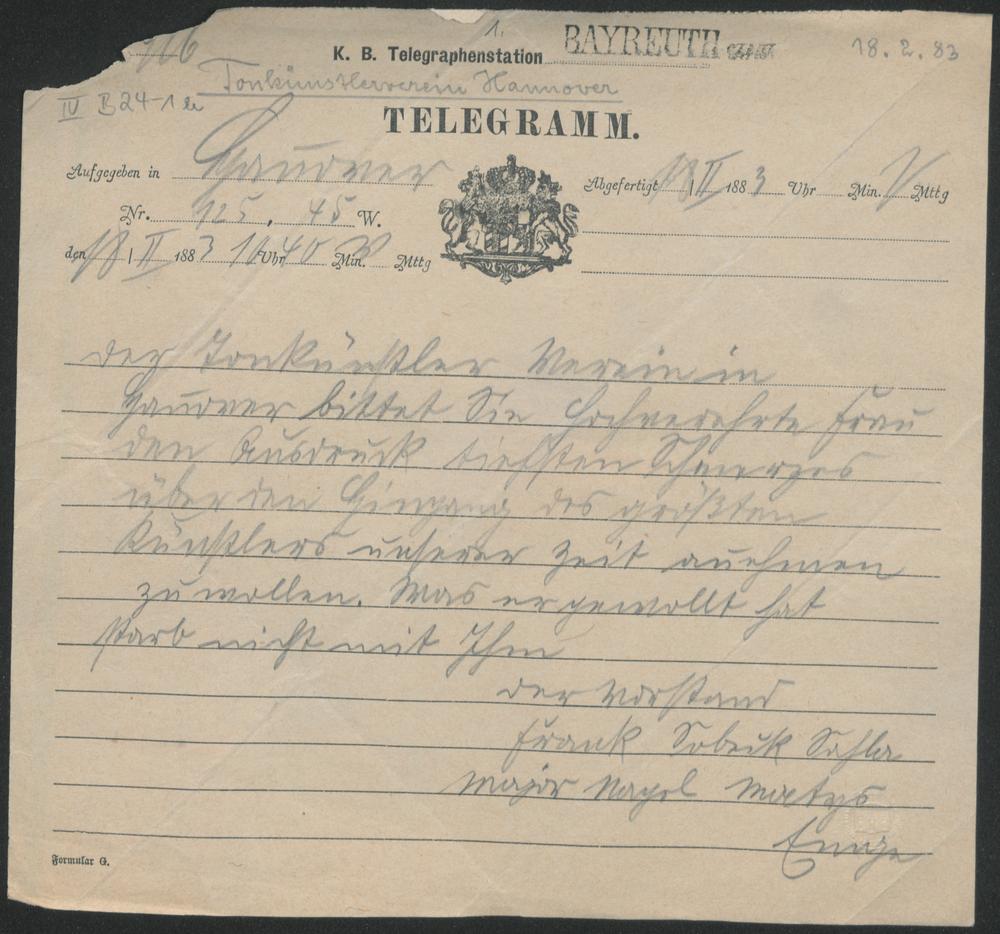 1.
K. B. Telegraphenstation BAYREUTH
18. 2. 83
Tonkünstlerverein Hannover
IV B 24-1
TELEGRAMM.
Aufgegeben in Hannover
Abgefertigt 18/II 1883 Uhr Min. V Mttg
Nr. 125. 45 W.
den 18/II 1883 11 Uhr 40 Min. V Mttg
der Tonkünstler Verein in
Hannover bittet Sie hochverehrte Frau
den Ausdruck tiefsten Schmerzes
über den Hingang des größten
Künstlers unserer Zeit annehmen
zu wollen. Was er gewollt hat
starb nicht mit Ihm
der Vorstand
Frank Sobeck Sahla
Major Nagel Matys
Formular G.